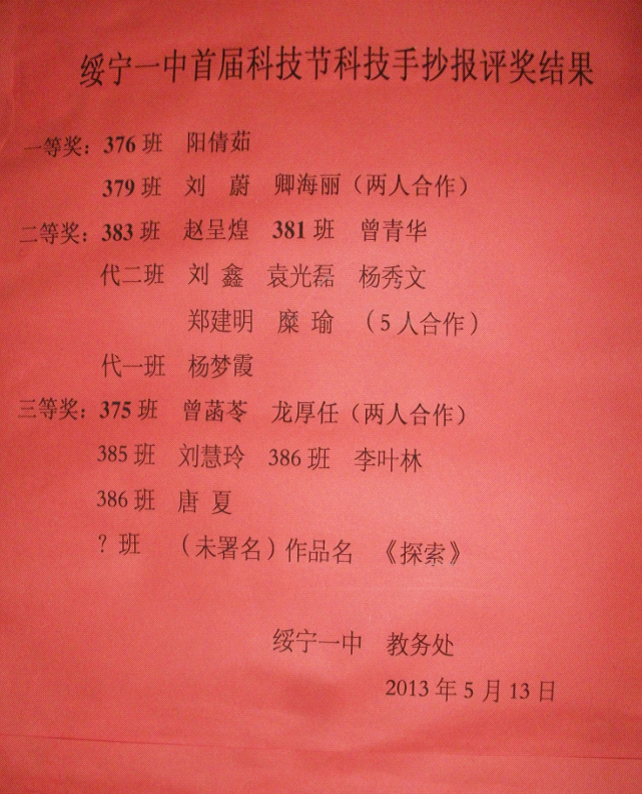 绥宁一中首届科技节科技手抄报评奖结果
一等奖：376 班 阳倩茹
379 班 刘 蔚 卿海丽（两人合作）
二等奖：383 班 赵呈煌 381 班 曾青华
代二班 刘 鑫 袁光磊 杨秀文
郑建明 糜 瑜 （5 人合作）
代一班 杨梦霞
三等奖：375 班 曾菡苓 龙厚任（两人合作）
385 班 刘慧玲 386 班 李叶林
386 班 唐 夏
？班 （未署名）作品名 《探索》
绥宁一中 教务处
2013 年 5 月 13 日